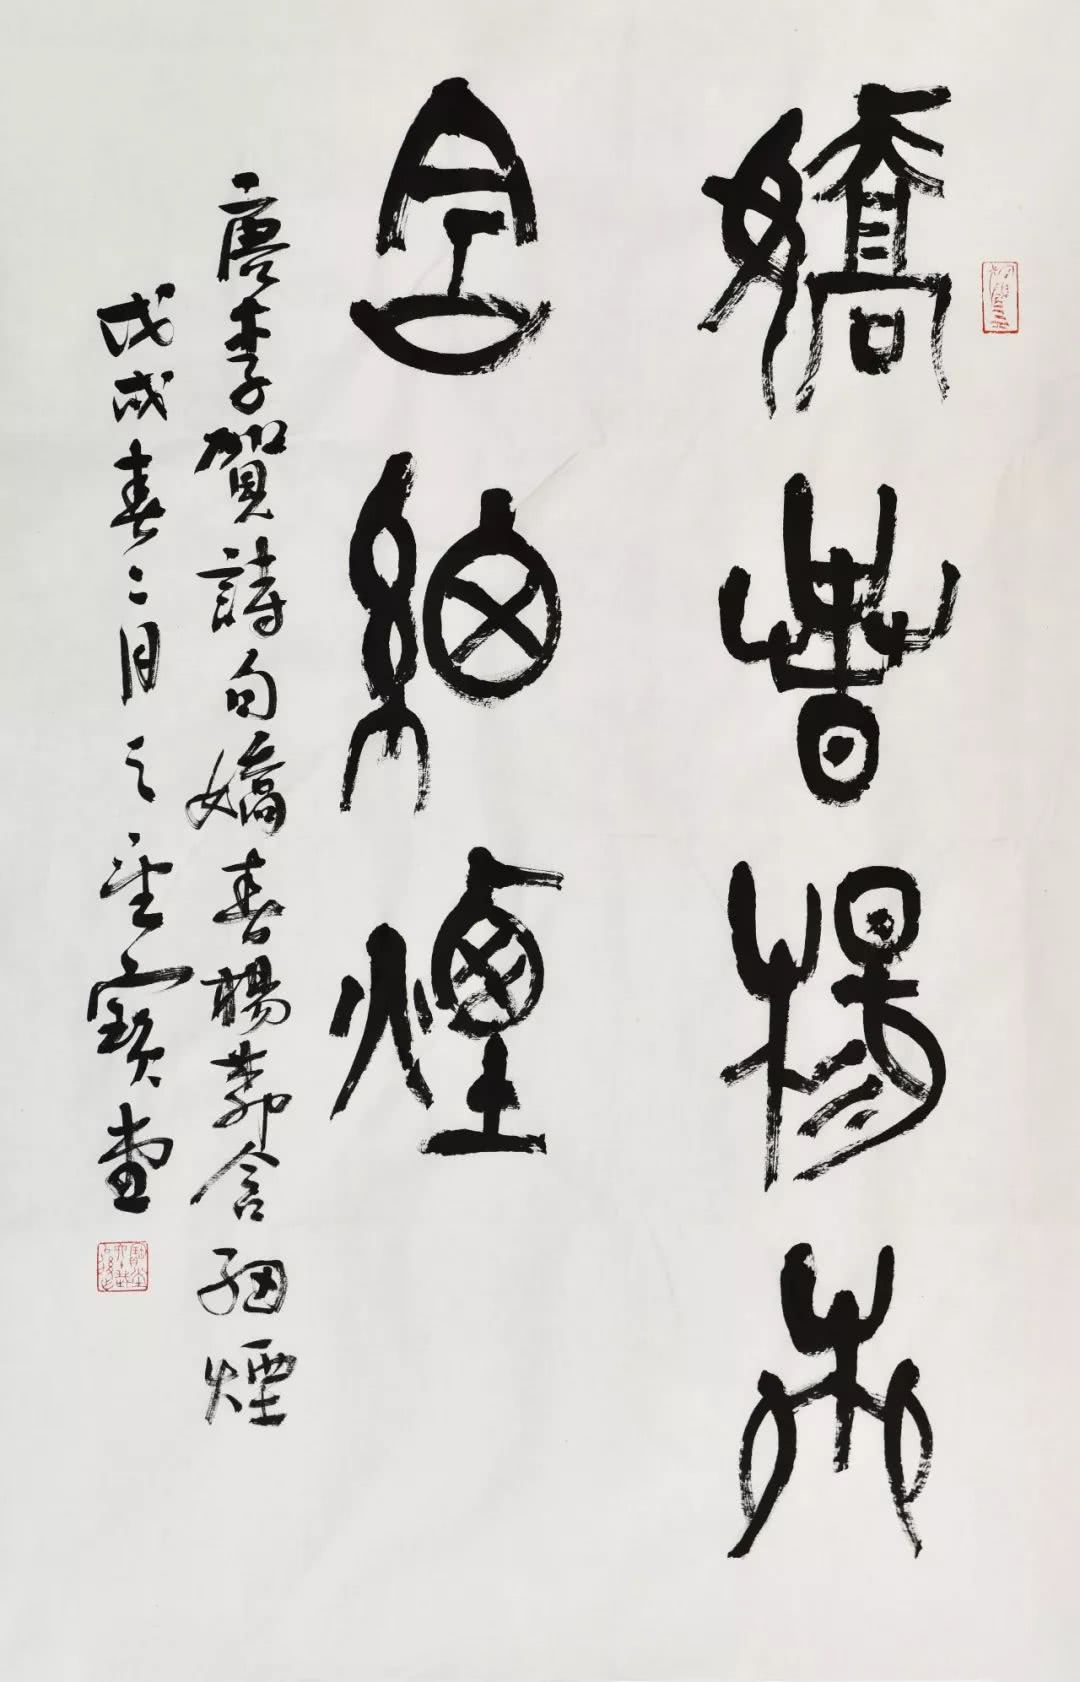 嬌春楊茆
含細煙
唐李賀詩句嬌春楊茆含細煙
戊戌春二月之望寶堂